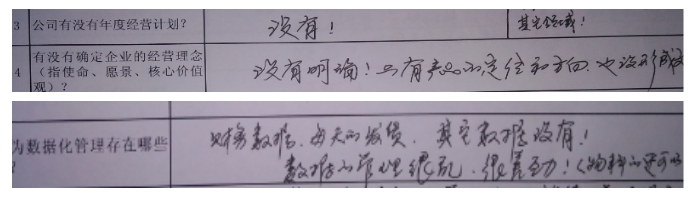 3 公司有没有年度经营计划? 没有!
4 有没有确定企业的经营理念
(指使命、愿景、核心价值
观)?
没有明确!只有产品的定位和方向.也没形成
为数据化管理存在哪些
财务数据、每天的发货、其它数据没有!
数据的管理很乱、很差劲!(物料的还可以